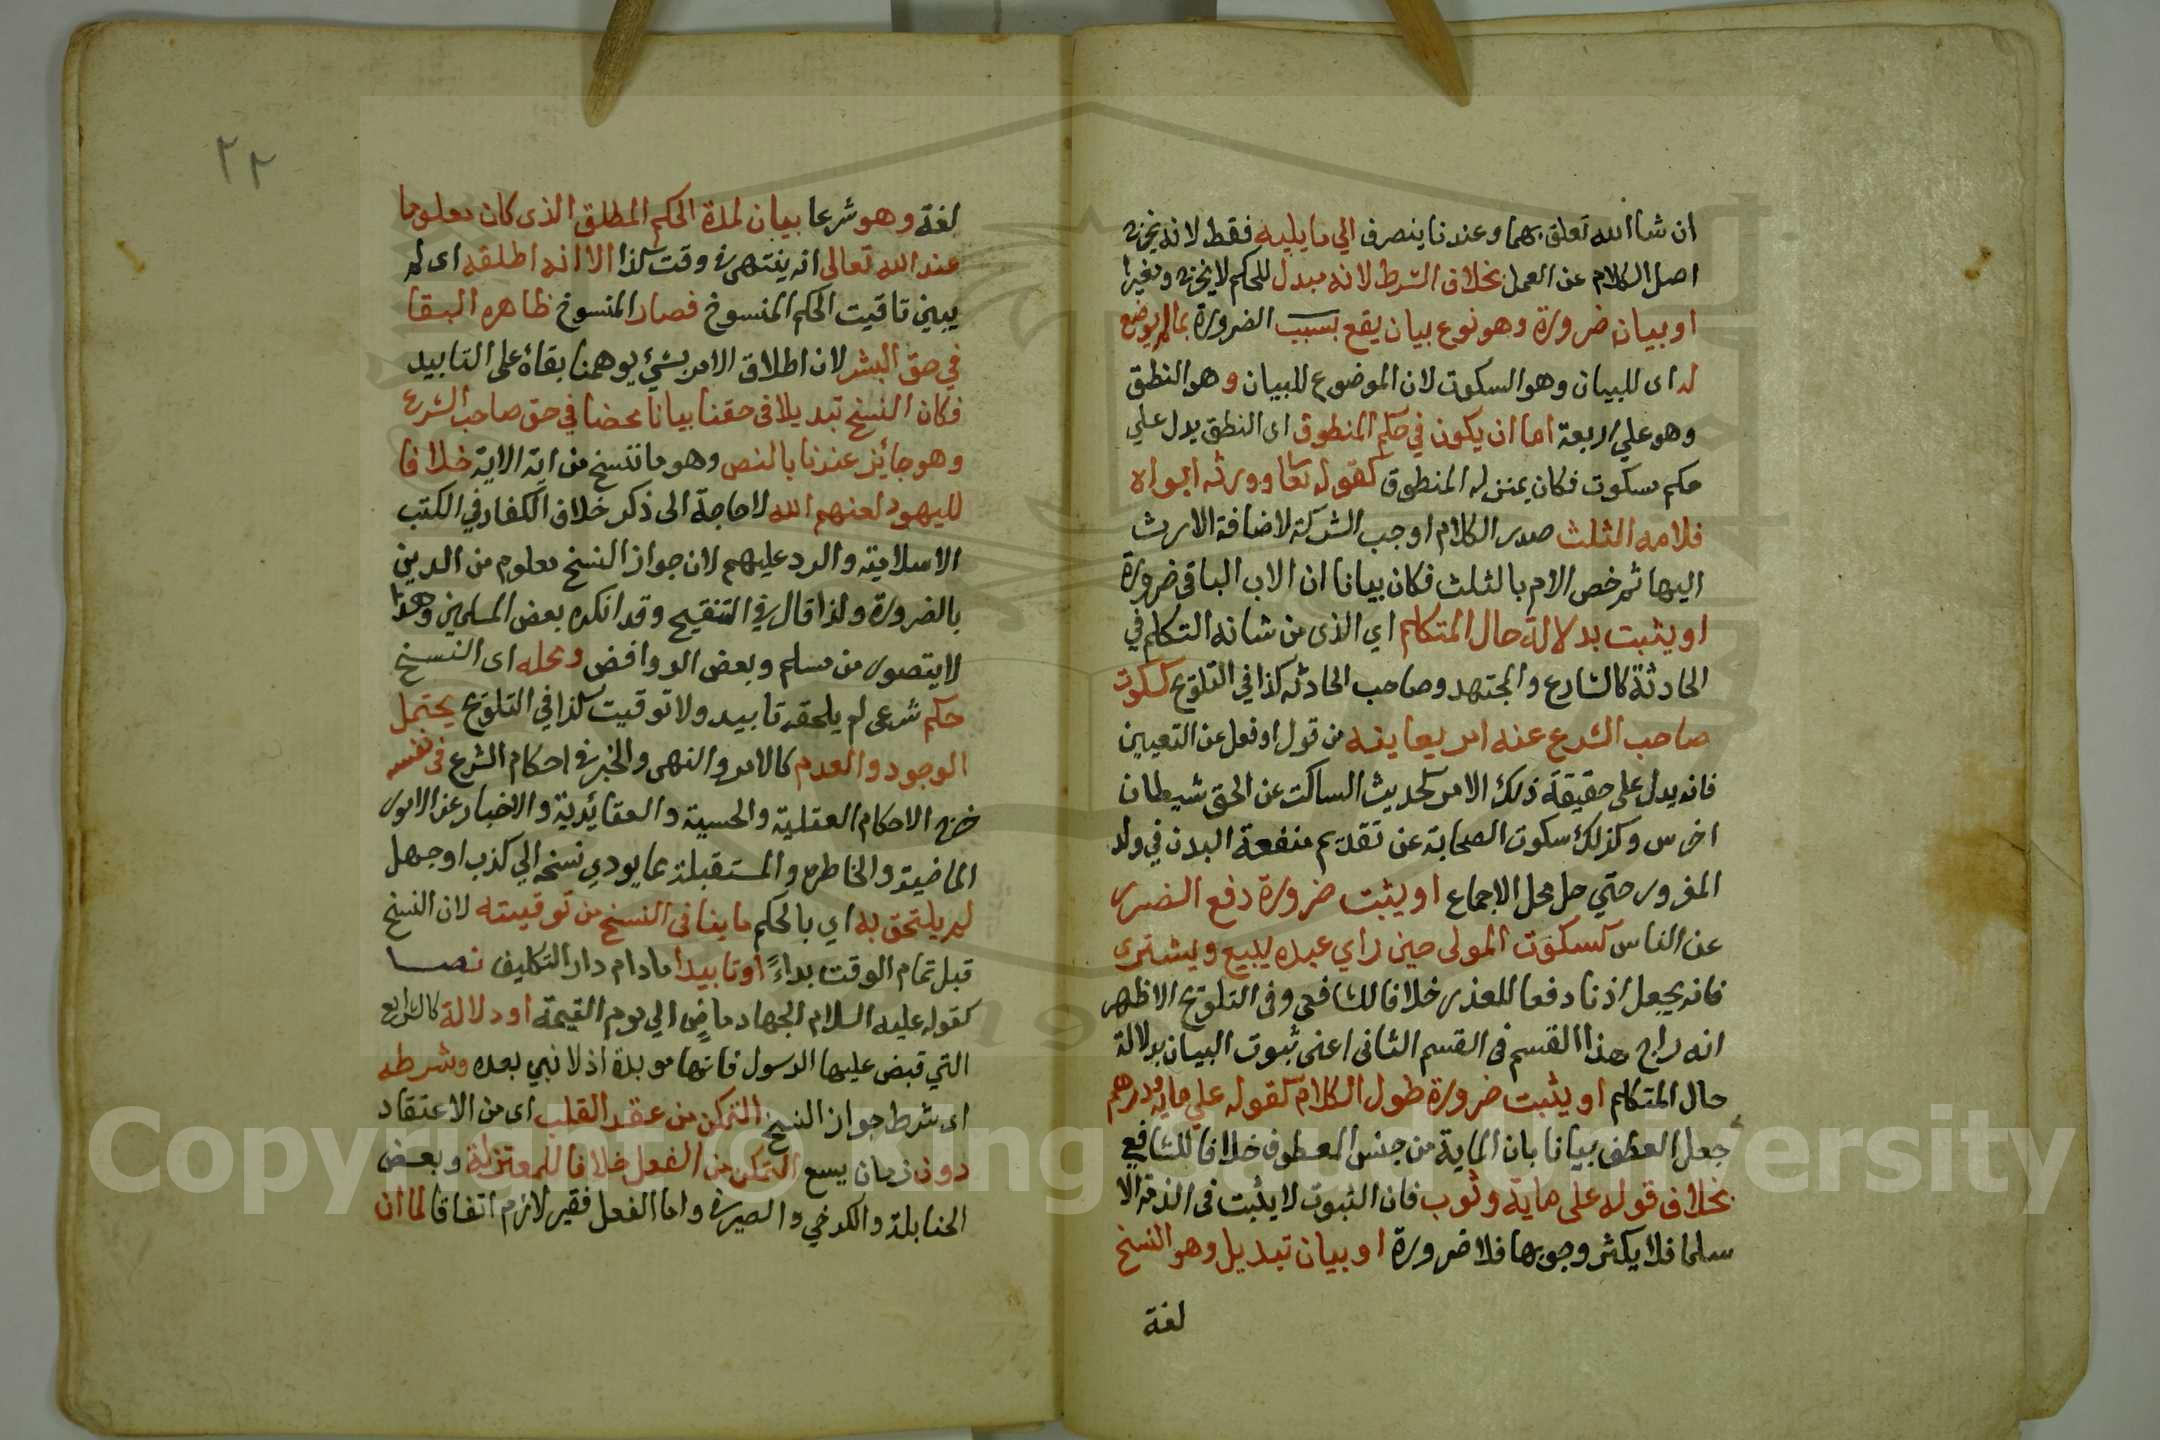 ان شا الله تعلق بهما وعندنا ينصرف الي ما يليه فقط لانه يخرج
اصل الكلام عن العمل بخلاف الشرط لانه مبدل للحكم لا يخرج ومغيرا
او بيان ضرورة وهو نوع بيان يقع بسبب الضرورة بما لم يوضع
له اى للبيان وهو السكوت لان الموضوع للبيان وهو النطق
وهو علي اربعة اما ان يكون في حكم المنطوق اى النطق يدل علي
حكم سكوت فكان بمنزله المنطوق كقوله تعا وورثه ابواه
فلامه الثلث صدر الكلام اوجب الشركة لاضافة الارث
اليها ثم خص الام بالثلث فكان بيانا ان الاب الباقى ضرورة
او يثبت بدلالة حال المتكلم اي الذى من شانه التكلم في
الحادثة كالشارع والمجتهد وصاحب الحادثه كذا في التلويح كسكوت
صاحب الشرع عنه امر يعاينه من قول او فعل عن التعيين
فانه يدل على حقيقة ذلك الامر كحديث الساكت عن الحق شيطان
اخرس وكذلك سكوت الصحابة عن تقديم منفعة البدن في ولد
المغرور حتي حل محل الاجماع او يثبت ضرورة دفع الضرر
عن الناس كسكوت المولى حين راي عبده يبيع ويشترى
فانه يجعل اذنا دفعا للعذر خلافا للشافعى وفى التلويح الاظهر
انه راجع هذا القسم فى القسم الثانى اعنى ثبوت البيان بدلالة
حال المتكلم او يثبت ضرورة طول الكلام كقوله علي ماية ودرهم
جعل العطف بيانا بان الماية من جنس المعطوف خلافا للشافعي
بخلاف قوله على ماية وثوب فان الثبوت لا يثبت فى الذمة الا
سلما فلا يكثر وجوبها فلا ضرورة او بيان تبديل وهو النسخ
لغة
٢٢
لغة وهو شرعا بيان لمدة الحكم المطلق الذى كان معلوما
عند الله تعالى انه ينتهى في وقت كذا الا انه اطلقه اى لم
يبين تاقيت الحكم المنسوخ فصار المنسوخ ظاهره البقا
في حق البشر لان اطلاق الامر بشئ يوهمنا بقاة على التابيد
فكان النسخ تبديلا فى حقنا بيانا محضا في حق صاحب الشرع
وهو جائز عندنا بالنص وهو ما ننسخ من اية الاية خلافا
لليهود لعنهم الله لا حاجة الى ذكر خلاف الكفار في الكتب
الاسلامية والرد عليهم لان جواز النسخ معلوم من الدين
بالضرورة ولذا قال في التنقيح وقد انكره بعض المسلمين وهذا
لا يتصور من مسلم وبعض الروافض ومحله اى النسخ
حكم شرعى لم يلحقه تابيد ولا توقيت كذا في التلويح يحتمل
الوجود والعدم كالامر والنهى والخبر في احكام الشرع فى نفسه
خرج الاحكام العقلية والحسية والعقائدية والاخبار عن الامور
الماضية والحاظره والمستقبلة مما يودي نسخه الي كذب او جهل
لم يلتحق به اي بالحكم ما ينافى النسخ من توقيته لان النسخ
قبل تمام الوقت بداءً او تابيدا مادام دار التكليف نصا
كقوله عليه السلام الجهاد ماضٍ الي يوم القيمة او دلالة كالشرايع
التي قبض عليها الرسول فانها موبدة اذ لا نبي بعده وشرطه
اى شرط جواز النسخ التمكن من عقد القلب اى من الاعتقاد
دون زمان يسع التمكن من الفعل خلافا للمعتزلة وبعض
الحنابلة والكرخي والصيرفي واما الفعل فغير لازم اتفاقا لما ان
Copyright © King Saud University